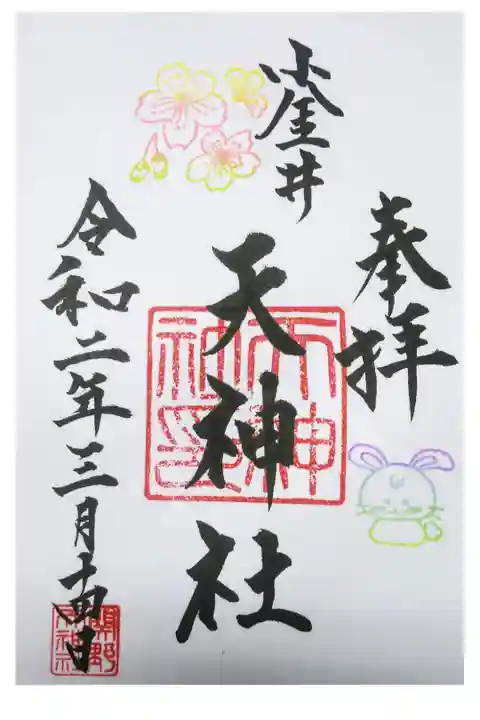 奉拝
小金井
天神社
令和二年三月十四日
天神社印